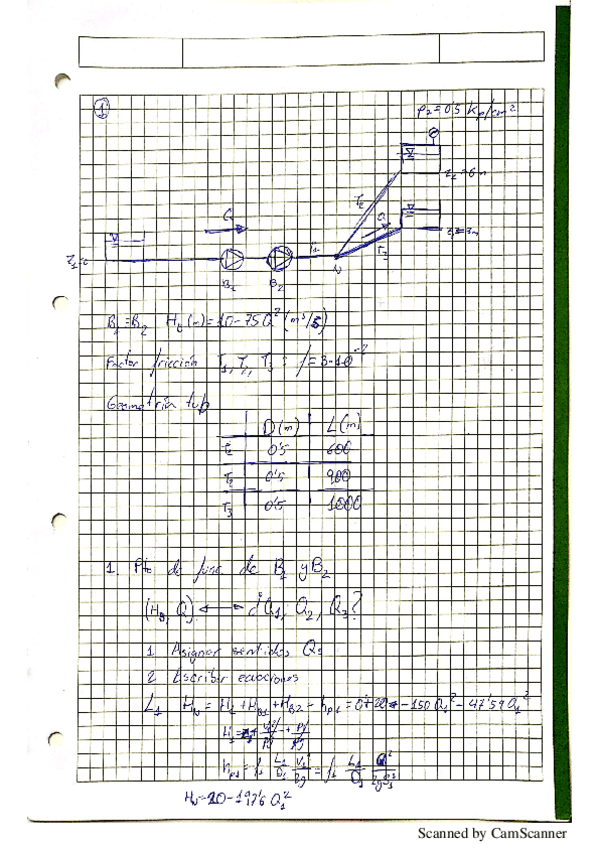 1
P2=0'5 kp/cm2
z2=6m
T2
Q
z3=3m
T3
Q
T1
N
Z1=0
B1
B2
B1=B2 Hb(m)=10-75Q2(m3/s)
Factor fricción T1, T2, T3 : f=3·10-2
Geometría tub
D(m) L(m)
T1 0'5 600
T2 0'5 900
T3 0'5 1000
1. Pto de func de B1 y B2
(HB, Q) ↔ ¿Q1, Q2, Q3?
1 Asignar sentidos Q
2 Escribir ecuaciones
L1 HN = H1 + HB1 + HB2 - hp1 = 0+20 - 150Q12 - 47'59Q12
hp1 = f1 L1/D1 V12/2g = f1 L1/D1
HN=20-197'6 Q12
Scanned by CamScanner